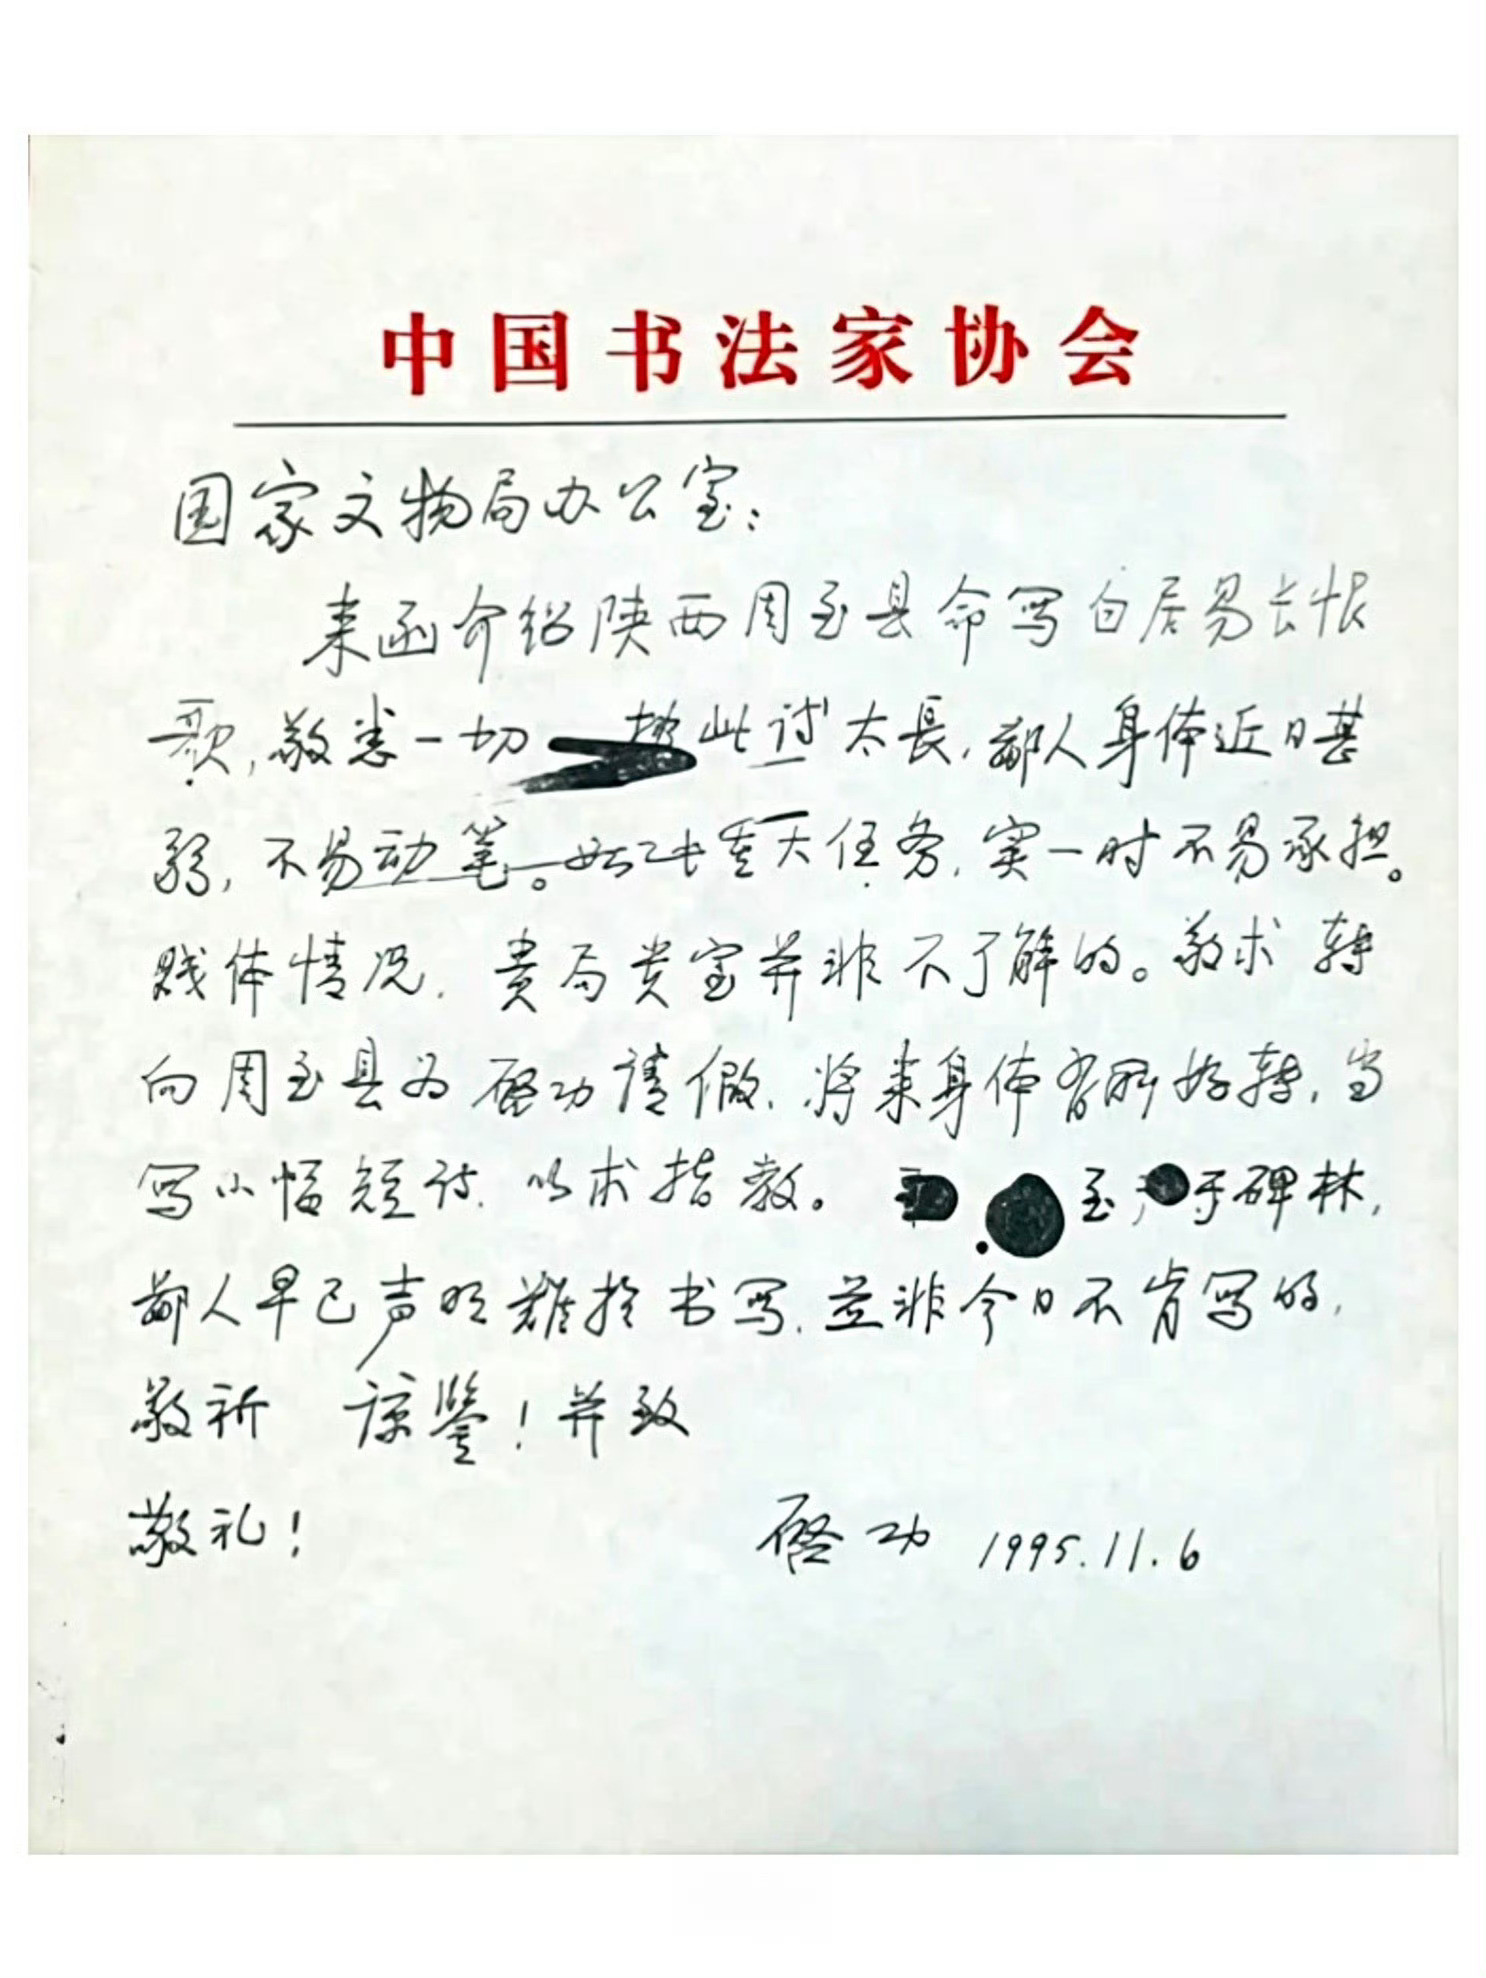 中国书法家协会
国家文物局办公室：
来函介绍陕西周至县命写白居易长恨
歌，敬悉一切 此诗太長，鄙人身体近日甚
弱，不易动笔。如此重大任务，实一时不易承担。
贱体情况，贵局贵室并非不了解的。敬求 转
向周至县为启功请假，将来身体有所好转，当
写小幅短诗，以求指教。 至于碑林，
鄙人早已声明难於书写，並非今日不肯写的，
敬祈 谅鉴！并致
敬礼！ 启功 1995.11.6